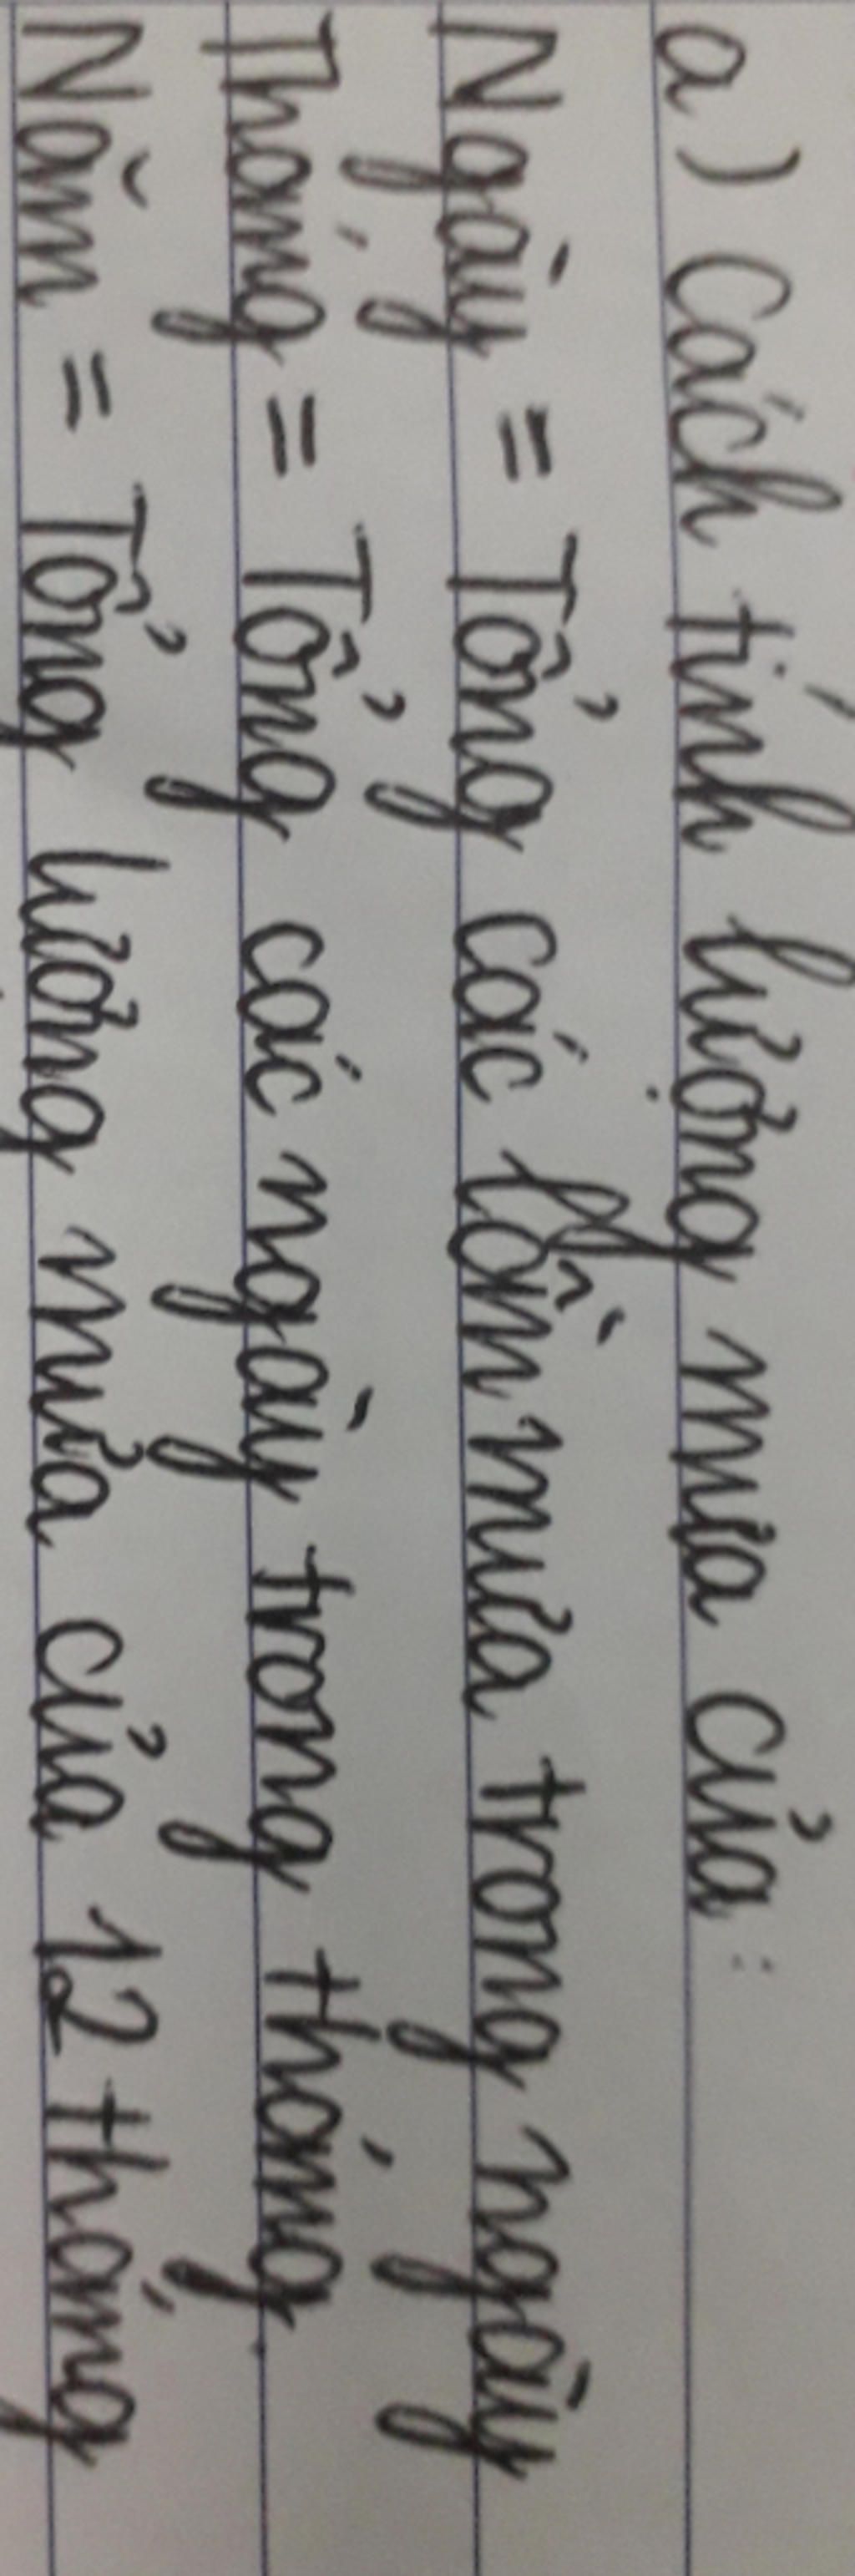 a) Cách tính lượng mưa của:
Ngày = Tổng các lần mưa trong ngày
Tháng = Tổng các ngày trong tháng.
Năm = Tổng lương mưa của 12 tháng